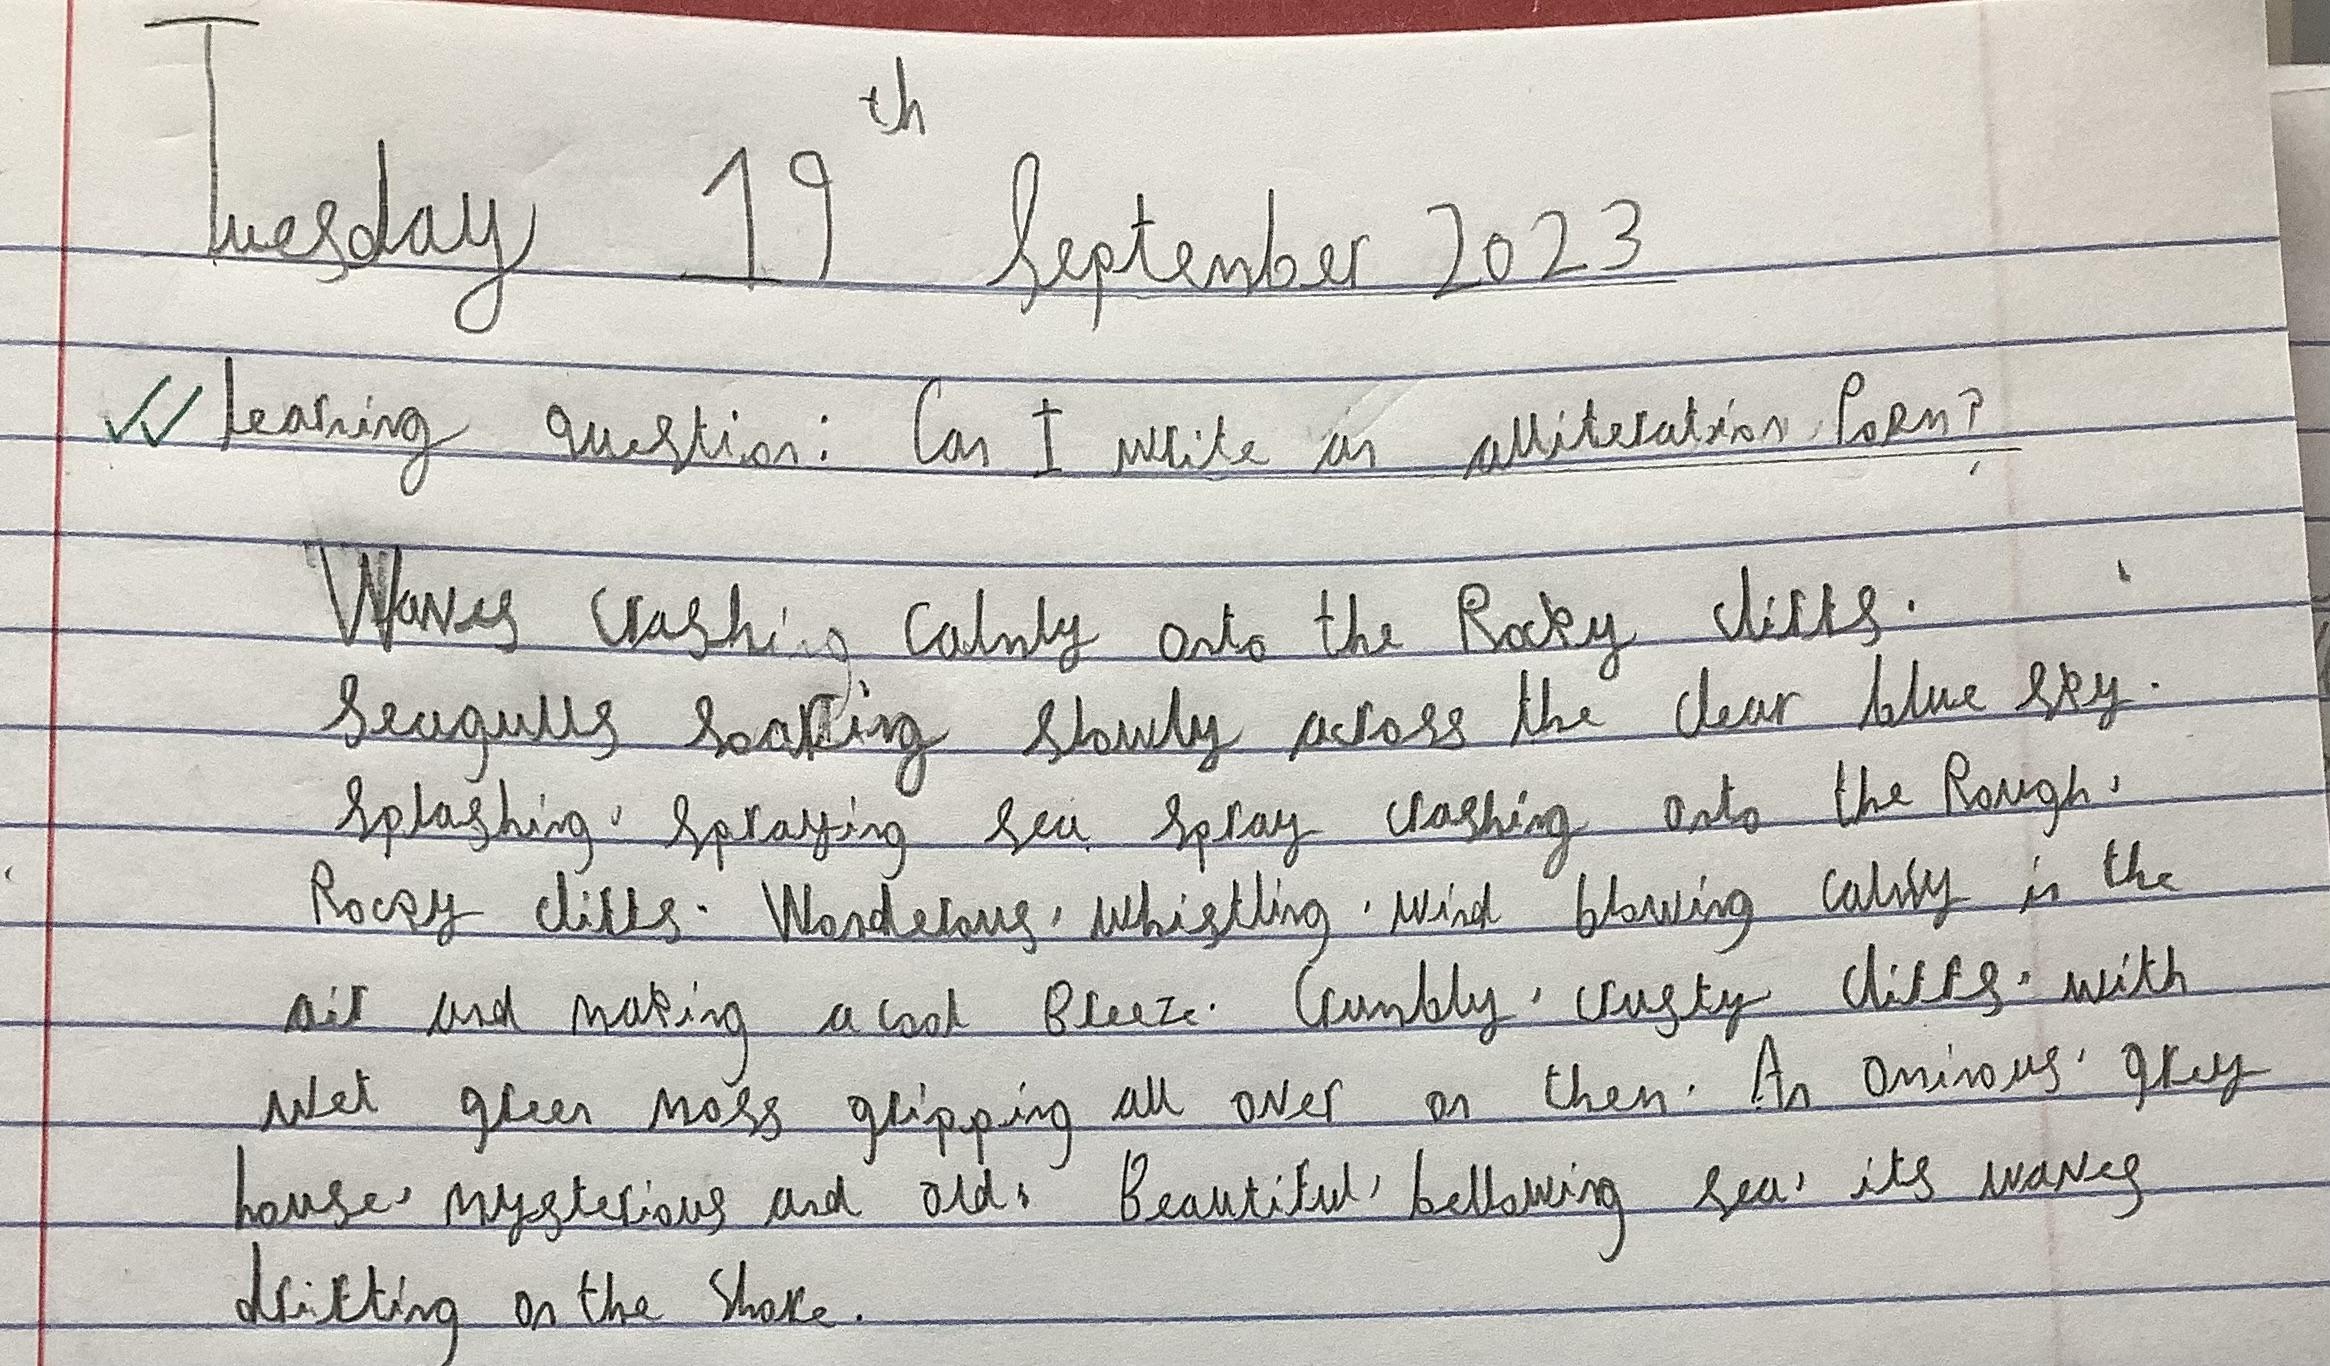 Tuesday 19th September 2023
Learning question: Can I write an alliteration Poem?
Waves crashing Calmly onto the Rocky cliffs.
Seagulls soaring slowly across the clear blue sky.
Splashing, spraying sea spray crashing onto the Rough,
Rocky cliffs. Wonderous, whistling, wind blowing calmly in the
air and making a cool Breeze. Crumbly, crusty cliffs, with
wet green moss gripping all over on them. An Ominous, grey
house, mysterious and old. Beautiful, bellowing sea, its waves
drifting on the Shore.